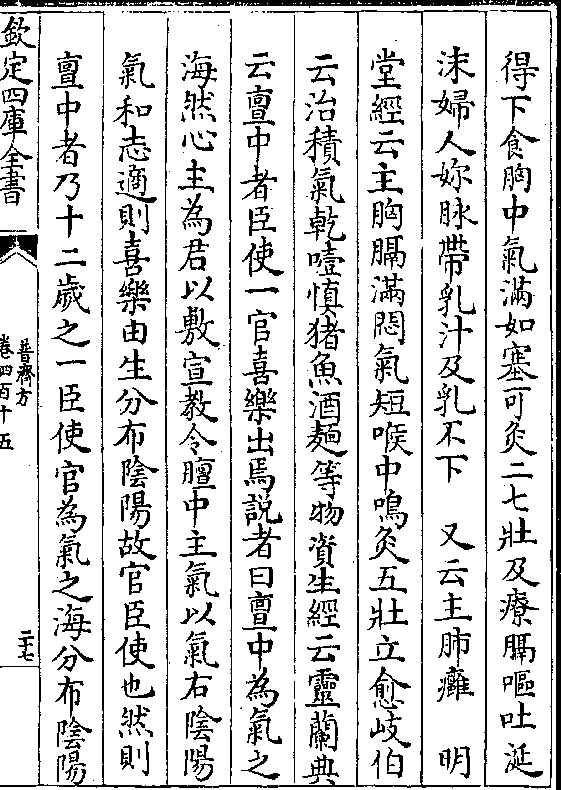 得下食胸中氣滿如塞可灸二七壯及療膈嘔吐涎
沫婦人妳脉帶乳汁及乳不下　又云主肺癰　明
堂經云主胸膈滿悶氣短喉中鳴灸五壯立愈岐伯
云治積氣乾噎慎猪魚酒麵等物資生經云靈蘭典
云亶中者臣使一官喜樂出焉説者曰亶中為氣之
海然心主為君以敷宣教令膻中主氣以氣右陰陽
氣和志適則喜樂由生分布陰陽故官臣使也然則
亶中者乃十二歲之一臣使官為氣之海分布陰陽
欽定四庫全書
普濟方
卷四百十五
二十七